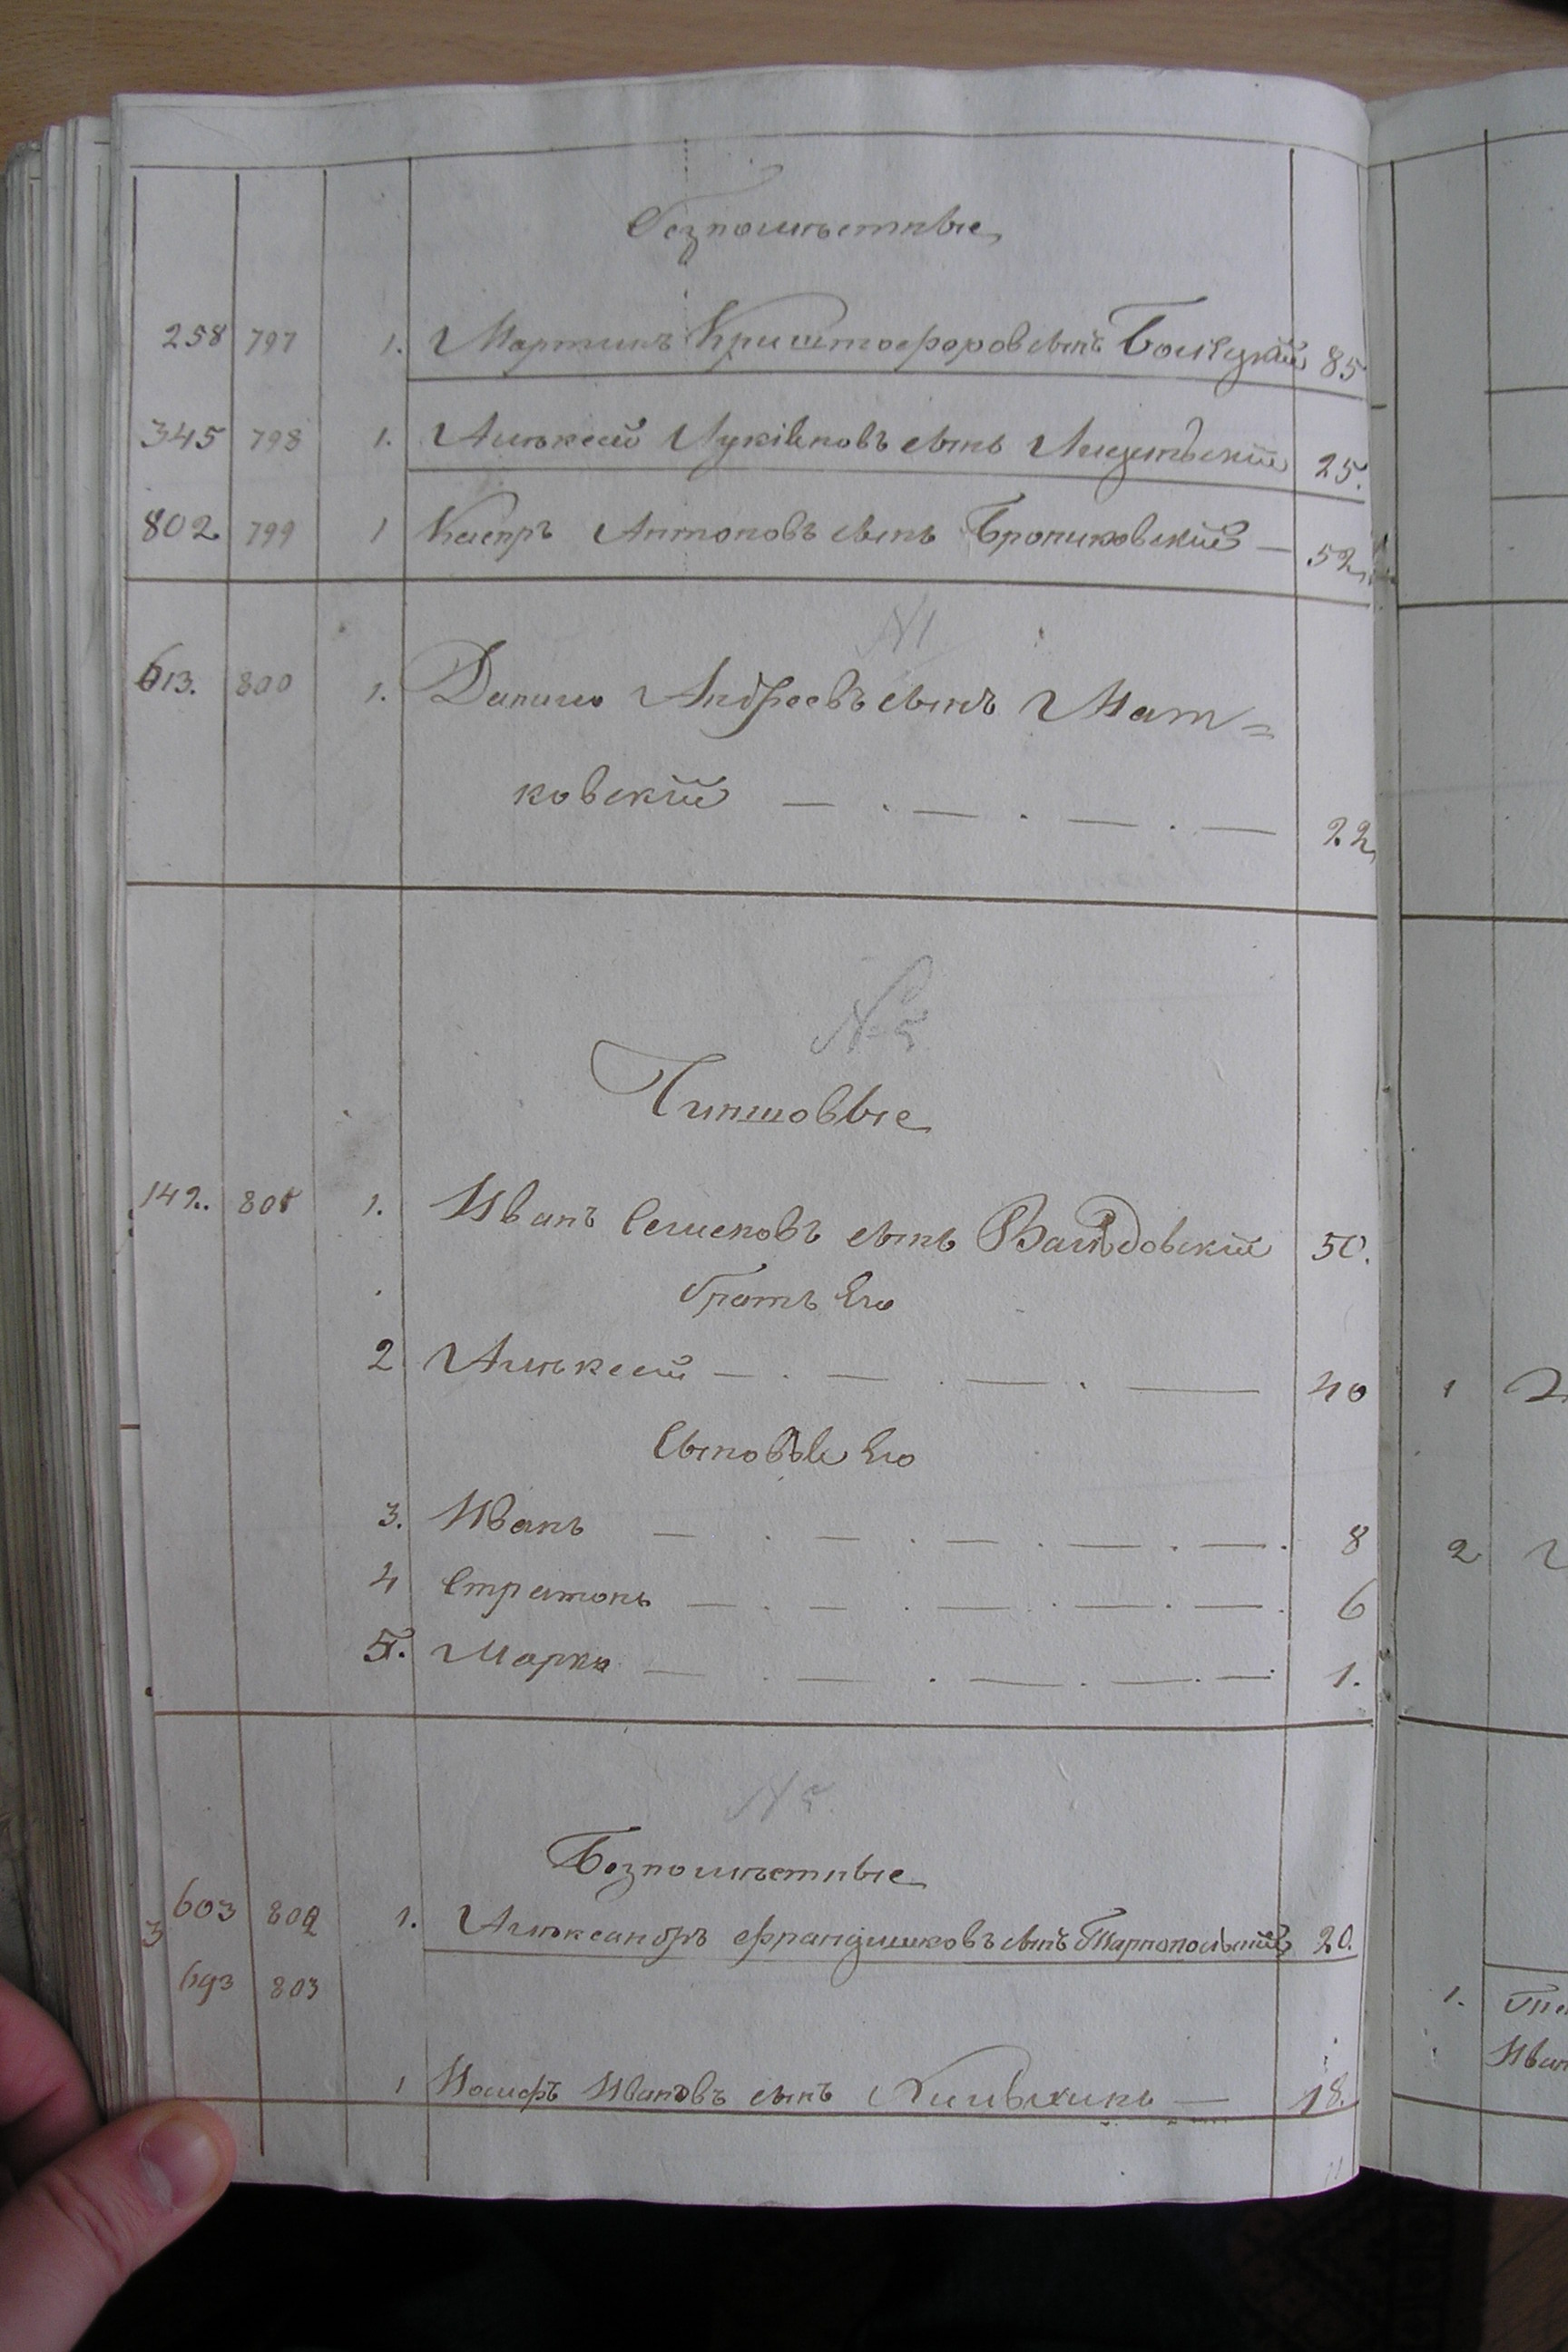 безпоместные
258 797 1. Мартинъ Криштофоровъ сынъ Бонецкий 85
345 798 1. Алексей Лукіяновъ сынъ 25.
802 799 1 Каспръ Антоновъ сынъ Брониковский — 52
N1
613. 800 1. Данило Андреевъ сынъ Мат=
ковский — . — . — . — 22
N 5
Чиншовые
142. 801 1. Иванъ Семеновъ сынъ 50.
братъ Его
2 Алексей — . — . — . — 40 1
Сыновье Его
3. Иванъ — . — . — . — . — . 8 2
4 Стратонъ — . — . — . — . — . 6
5. Марко — . — . — . — . 1.
N 5
Безпоместные
603 802 1. Александръ Францишковъ сынъ Тарнопольский 20.
3
693 803 1.
1 Иосифъ Ивановъ сынъ — 18.
Иван